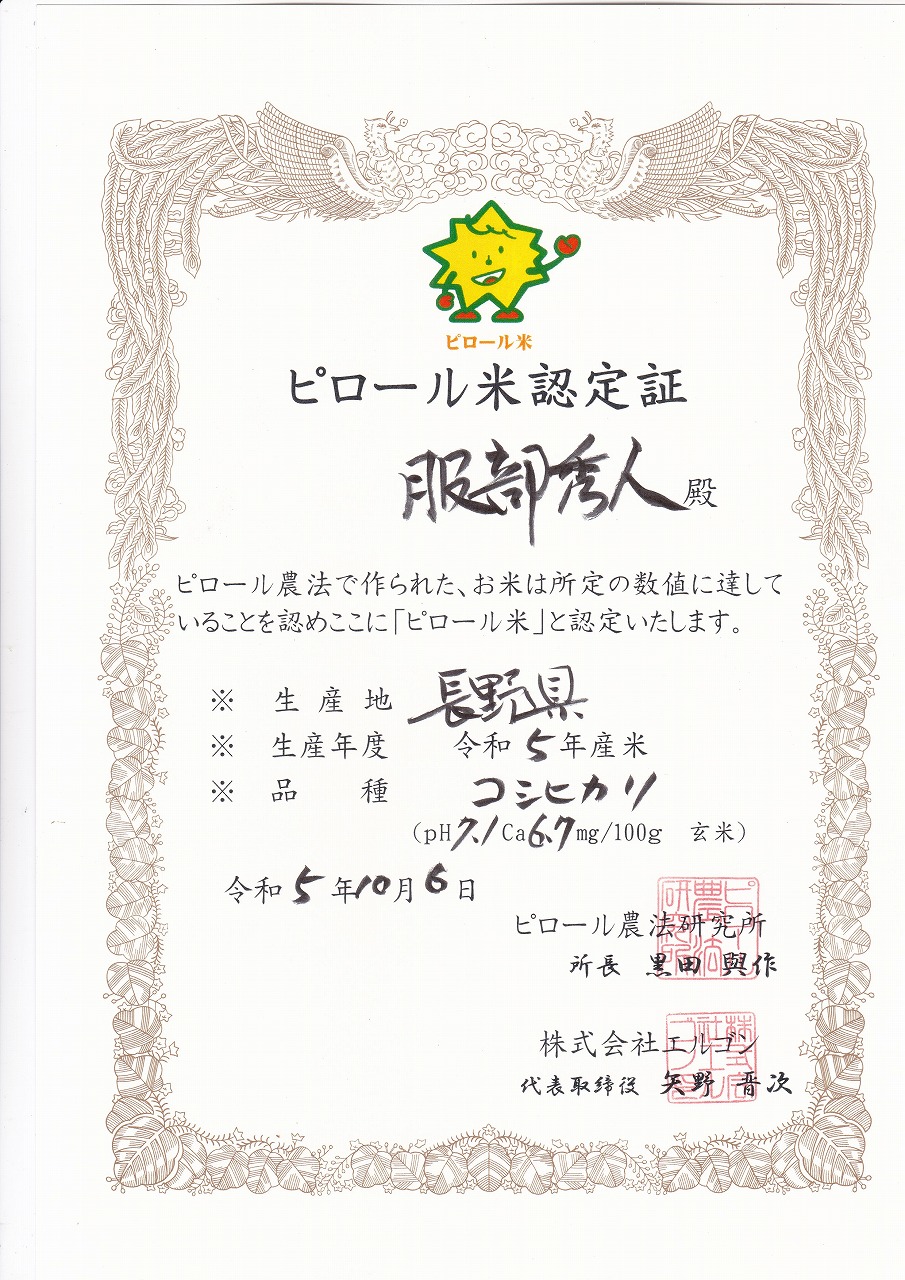 ピロール米
ピロール米認定証
服部秀人殿
ピロール農法で作られた、お米は所定の数値に達して
いることを認めここに「ピロール米」と認定いたします。
※ 生産地 長野県
※ 生産年度 令和5年産米
※ 品種 コシヒカリ
(pH7.1Ca6.7mg/100g 玄米)
令和5年10月6日
ピロール農法研究所
所長 黒田 與作
株式会社エルゴン
代表取締役 矢野 晋次